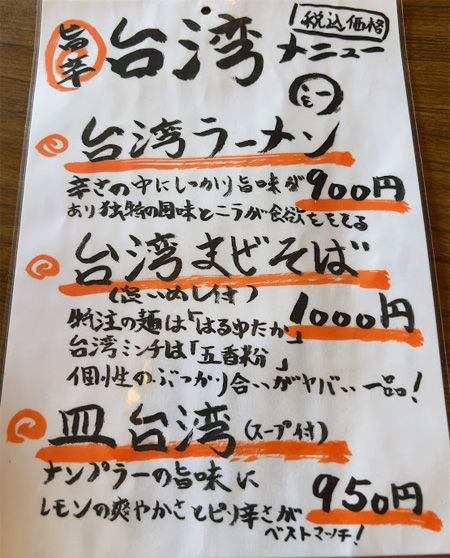 旨辛 台湾メニュー 税込価格
台湾ラーメン
辛さの中にしっかり旨味が 900円
あり独特の風味とニラが食欲をもてる
台湾まぜそば
(追いめし付)
特注の麺は「はるゆたか」 1000円
台湾ミンチは「五香粉」
個性のぶつかり合いがヤバい一品!
皿台湾(スープ付)
ナンプラーの旨味に 950円
レモンの爽やかさとピリ辛さが
ベストマッチ!